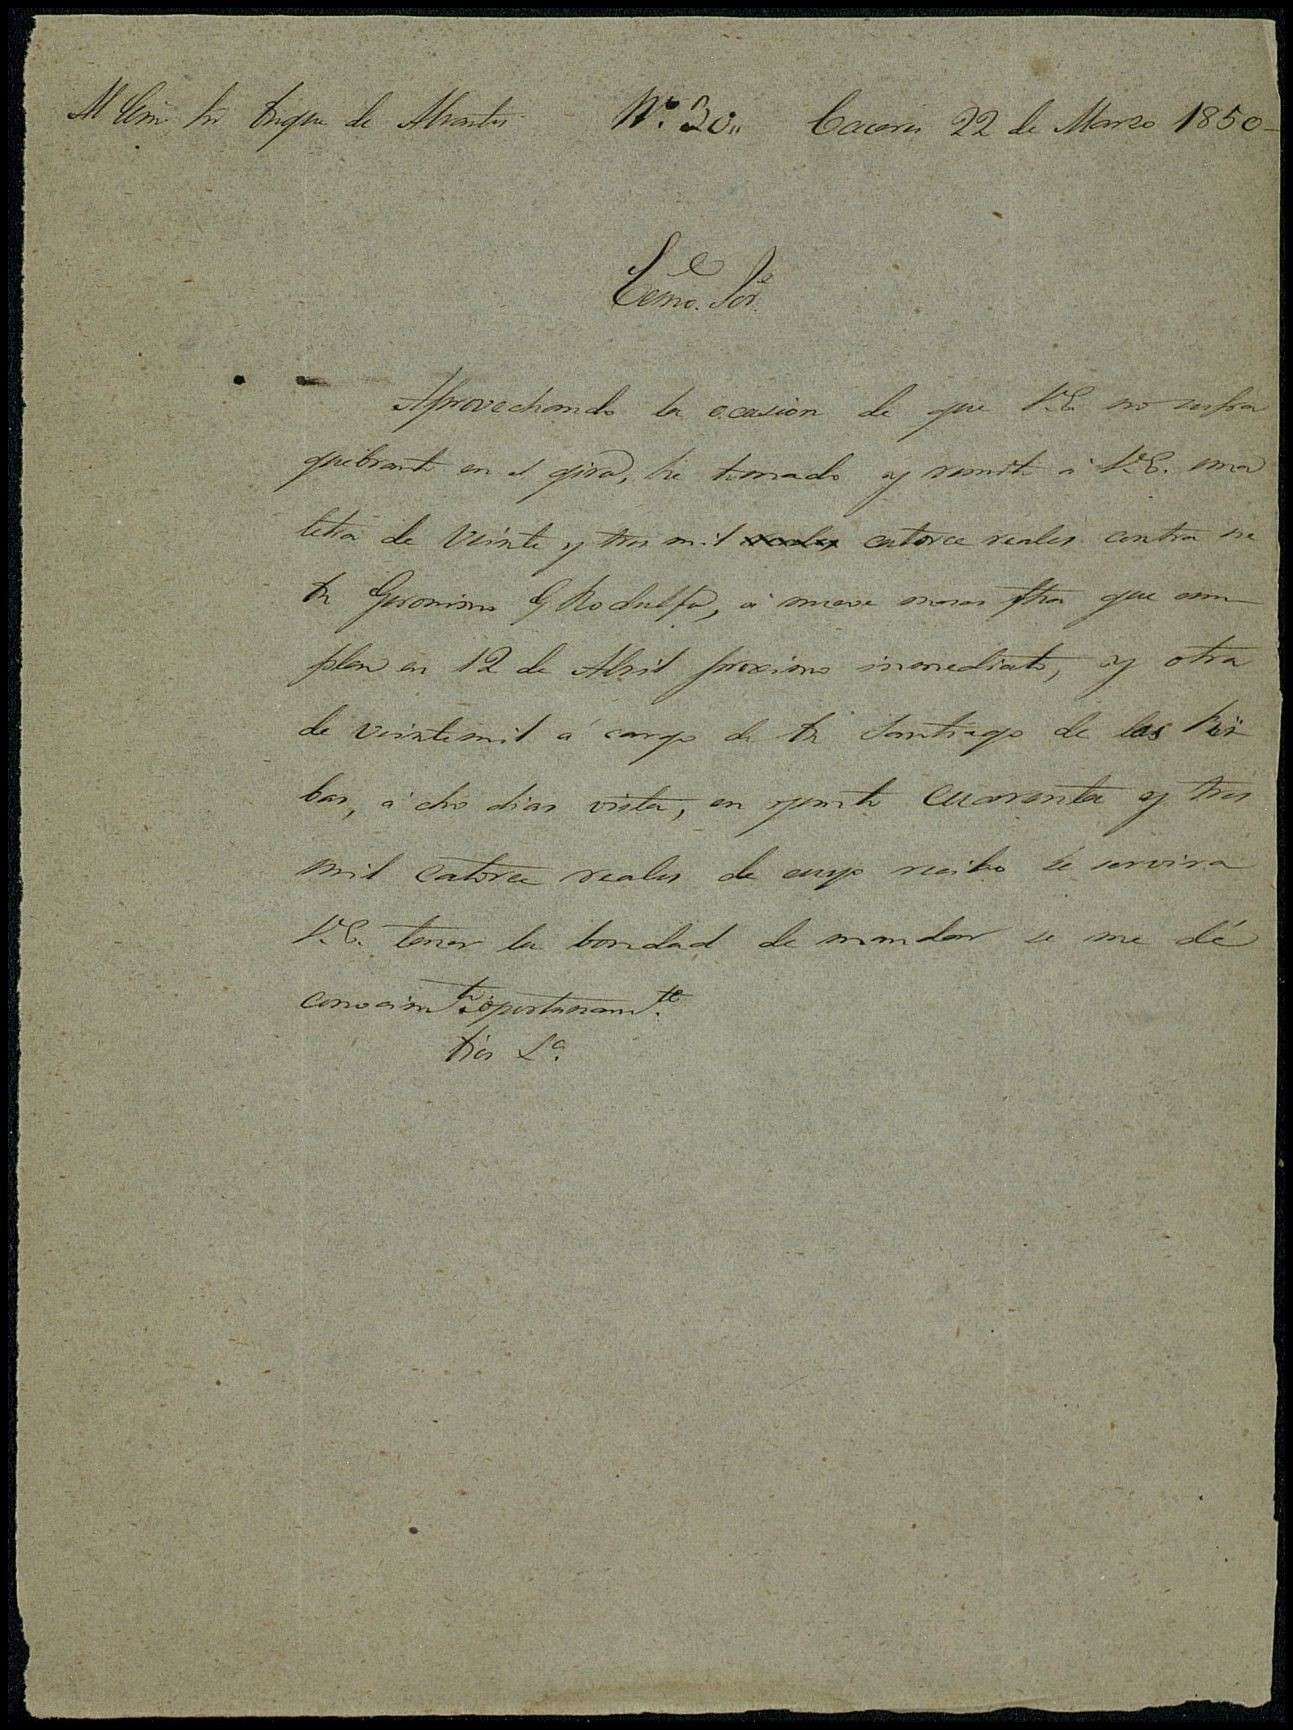 Al Exmo Sr Duque de Abrantes Nº. 30,, Caceres 22 de Marzo 1850-
Exmo. Sor.
Aprovechando la ocasion de que V.E. no sufra
quebranto en el giro, he tomado y remito á V.E. una
letra de Veinte y tres mil reales catorce reales contra
Dn Geronimo G Rodulfo, á nueve meses fha que cum
plen en 12 de Abril proximo inmediato, y otra
de veintemil á cargo de Dn Santiago de las
bas, á ocho dias vista, en junto cuarenta y tres
mil catorce reales de cuyo recibo se servira
V.E. tener la bondad de mandar se me dé
conocimto. oportunamte.
Dios &a.